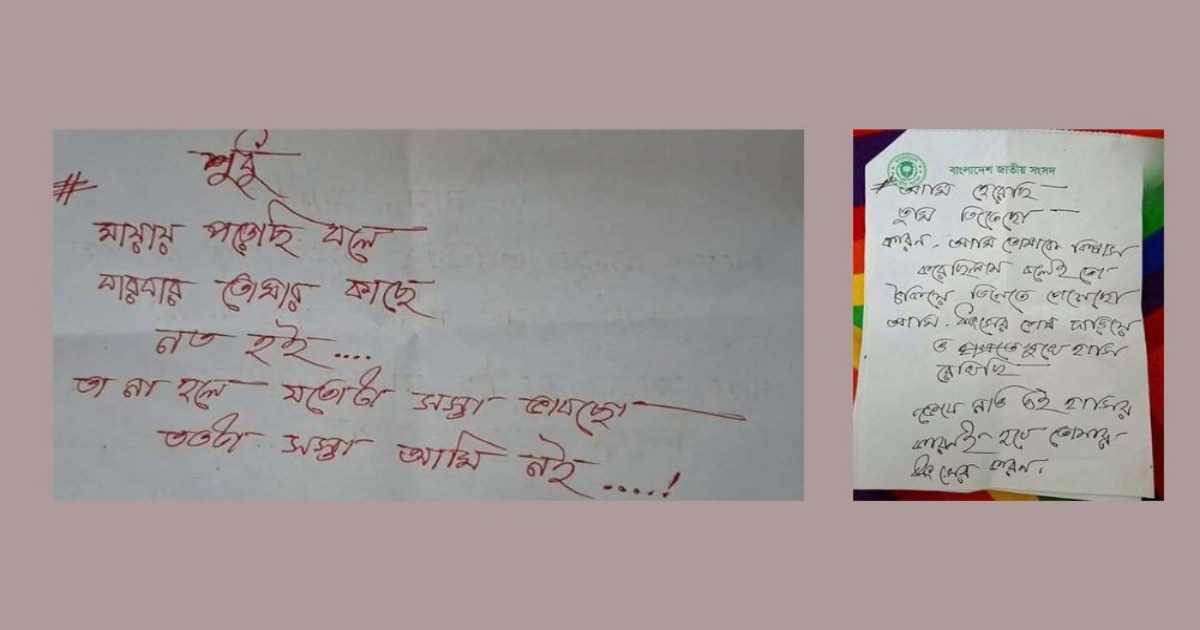 শুধু
# মায়ায় পড়েছি বলে
বারবার তোমার কাছে
নত হই ....
তা না হলে যতোটা সস্তা ভাবছো
ততটা সস্তা আমি নই ....!
বাংলাদেশ জাতীয় সংসদ
# আমি হেরেছি
তুমি জিতেছো
কারন - আমি তোমাকে বিশ্বাস
করেছিলাম বলেই তো
ঠকিয়ে জিততে পেরেছো
আমি - ধ্বংসের শেষ দাঁড়িয়ে
ও মুখে হাসি
রেখেছি
জেনে নাও এই হাসির
কারনই হবে তোমার
ধ্বংসের কারন।